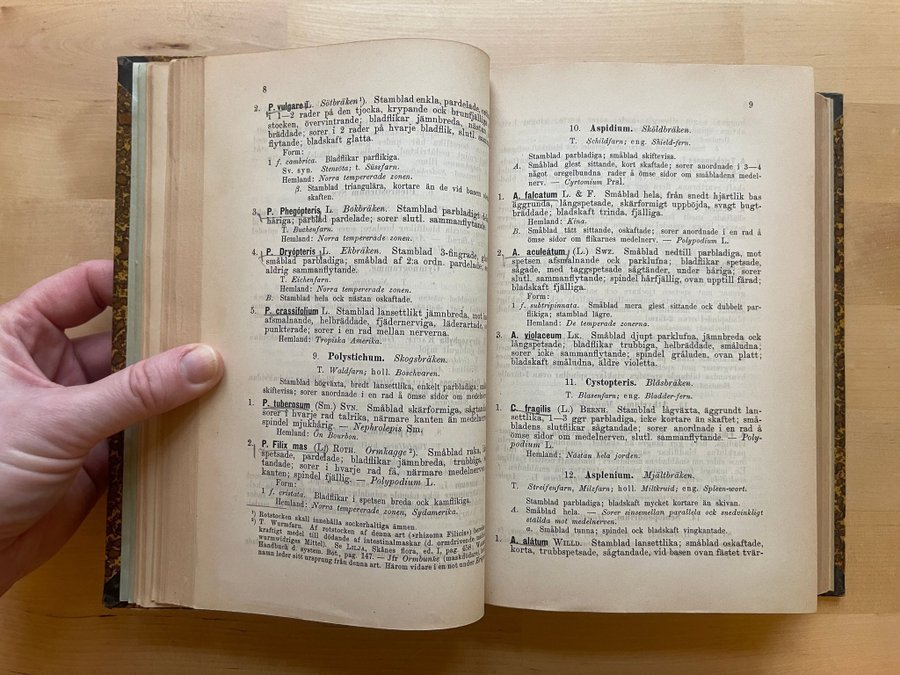 8
2. P. vulgare L. Sötbräken¹). Stamblad enkla, pardelade, och
i 1—2 rader på den tjocka, krypande och brunfjälliga
stocken, övervintrande; bladflikar jämnbreda, nästan
bräddade; sorer i 2 rader på hvarje bladflik, slutl.
flytande; bladskaft glatta.
Form:
1 f. cambrica. Bladflikar parflikiga.
Sv. syn. Stensota; t. Süsefarn.
Hemland: Norra tempererade zonen.
β. Stamblad triangulära, kortare än de vid basen
skaften.
3. P. Phegópteris L. Bokbräken. Stamblad parbladigt
håriga; parblad pardelade; sorer slutl. sammanflytande.
T. Buchenfarn.
Hemland: Norra tempererade zonen.
4. P. Dryópteris L. Ekbräken. Stamblad 3-fingrade,
småblad parbladiga; småblad af 2:a ordn. pardelade;
aldrig sammanflytande.
T. Eichenfarn.
Hemland: Norra tempererade zonen.
B. Stamblad hela och nästan oskaftade.
5. P. crassifolium L. Stamblad lansettlikt jämnbreda, mot
afsmalnande, helbräddade, fjädernerviga, läderartade,
punkterade; sorer i en rad mellan nerverna.
Hemland: Tropiska Amerika.
9. Polystichum. Skogsbräken.
T. Waldfarn; holl. Boschvaren.
Stamblad högväxta, bredt lansettlika, enkelt parbladiga;
skiftevisa; sorer anordnade i en rad å ömse sidor om medelnerven.
1. P. tuberosum (Sm.) Svn. Småblad skärformiga, sågtandade;
sorer i hvarje rad talrika, närmare kanten än medelnerven;
spindel mjukhårig. — Nephrolepis Sm.
Hemland: Ön Bourbon.
2. P. Filix mas (L.) Roth. Ormkagge²). Småblad raka,
spetsade, pardelade; bladflikar jämnbreda, trubbiga,
tandade; sorer i hvarje rad få, närmare medelnerven
kanten; spindel fjällig. — Polypodium L.
Form:
1 f. cristata. Bladflikar i spetsen breda och kamflikiga.
Hemland: Norra tempererade zonen, Sydamerika.
¹) Rotstocken skall innehålla sockerhaltiga ämnen.
²) T. Wurmfarn. Af rotstocken af denna art (»rhizoma Filicis»)
kraftigt medel till dödande af intestinalmaskar (d. ormdrivende
wurmwidriges Mittel). Se Lilja, Skånes flora, ed. I, pag. 458;
Handbuch d. system. Bot., pag. 147. — Jfr Ormbunke (maskfördrif
namn leder sitt ursprung från denna art. Härom vidare i en not under
9
10. Aspidium. Sköldbräken.
T. Schildfarn; eng. Shield-fern.
Stamblad parbladiga; småblad skiftevisa.
A. Småblad glest sittande, kort skaftade; sorer anordnade i 3—4
något oregelbundna rader å ömse sidor om småbladens medel-
nerv. — Cyrtomium Prsl.
1. A. falcatum L. & F. Småblad hela, från snedt hjärtlik bas
äggrunda, långspetsade, skärformigt uppböjda, svagt bugt-
bräddade; bladskaft trinda, fjälliga.
Hemland: Kina.
B. Småblad tätt sittande, oskaftade; sorer anordnade i en rad å
ömse sidor om flikarnes medelnerv. — Polypodium L.
2. A. aculeátum (L.) Swz. Småblad nedtill parbladiga, mot
spetsen afsmalnande och parklufna; bladflikar spetsade,
sågade, med taggspetsade sågtänder, under håriga; sorer
slutl. sammanflytande; spindel hårfjällig, ovan upptill fårad;
bladskaft fjälliga.
Form:
1 f. subtripinnata. Småblad mera glest sittande och dubbelt par-
flikiga; stamblad lägre.
Hemland: De temperade zonerna.
3. A. violaceum Lk. Småblad djupt parklufna, jämnbreda och
långspetsade; bladflikar trubbiga, helbräddade, småludna;
sorer icke sammanflytande; spindel gråluden, ovan platt;
bladskaft småludna, äldre violetta.
11. Cystopteris. Blåsbräken.
T. Blasenfarn; eng. Bladder-fern.
1. C. fragilis (L.) Bernh. Stamblad lågväxta, äggrundt lan-
settlika, 1—3 ggr parbladiga, icke kortare än skaftet; små-
bladens slutflikar sågtandade; sorer anordnade i en rad å
ömse sidor om medelnerven, slutl. sammanflytande. — Poly-
podium L
Hemland: Nästan hela jorden.
12. Asplenium. Mjältbräken.
T. Streifenfarn, Milzfarn; holl. Miltkruid; eng. Spleen-wort.
Stamblad parbladiga; bladskaft mycket kortare än skivan.
A. Småblad hela. — Sorer sinsemellan parallela och snedvinkligt
ställda mot medelnerven.
a. Småblad tunna; spindel och bladskaft vingkantade.
1. A. alátum Willd. Stamblad lansettlika; småblad oskaftade,
korta, trubbspetsade, sågtandade, vid basen ovan fästet tvär-